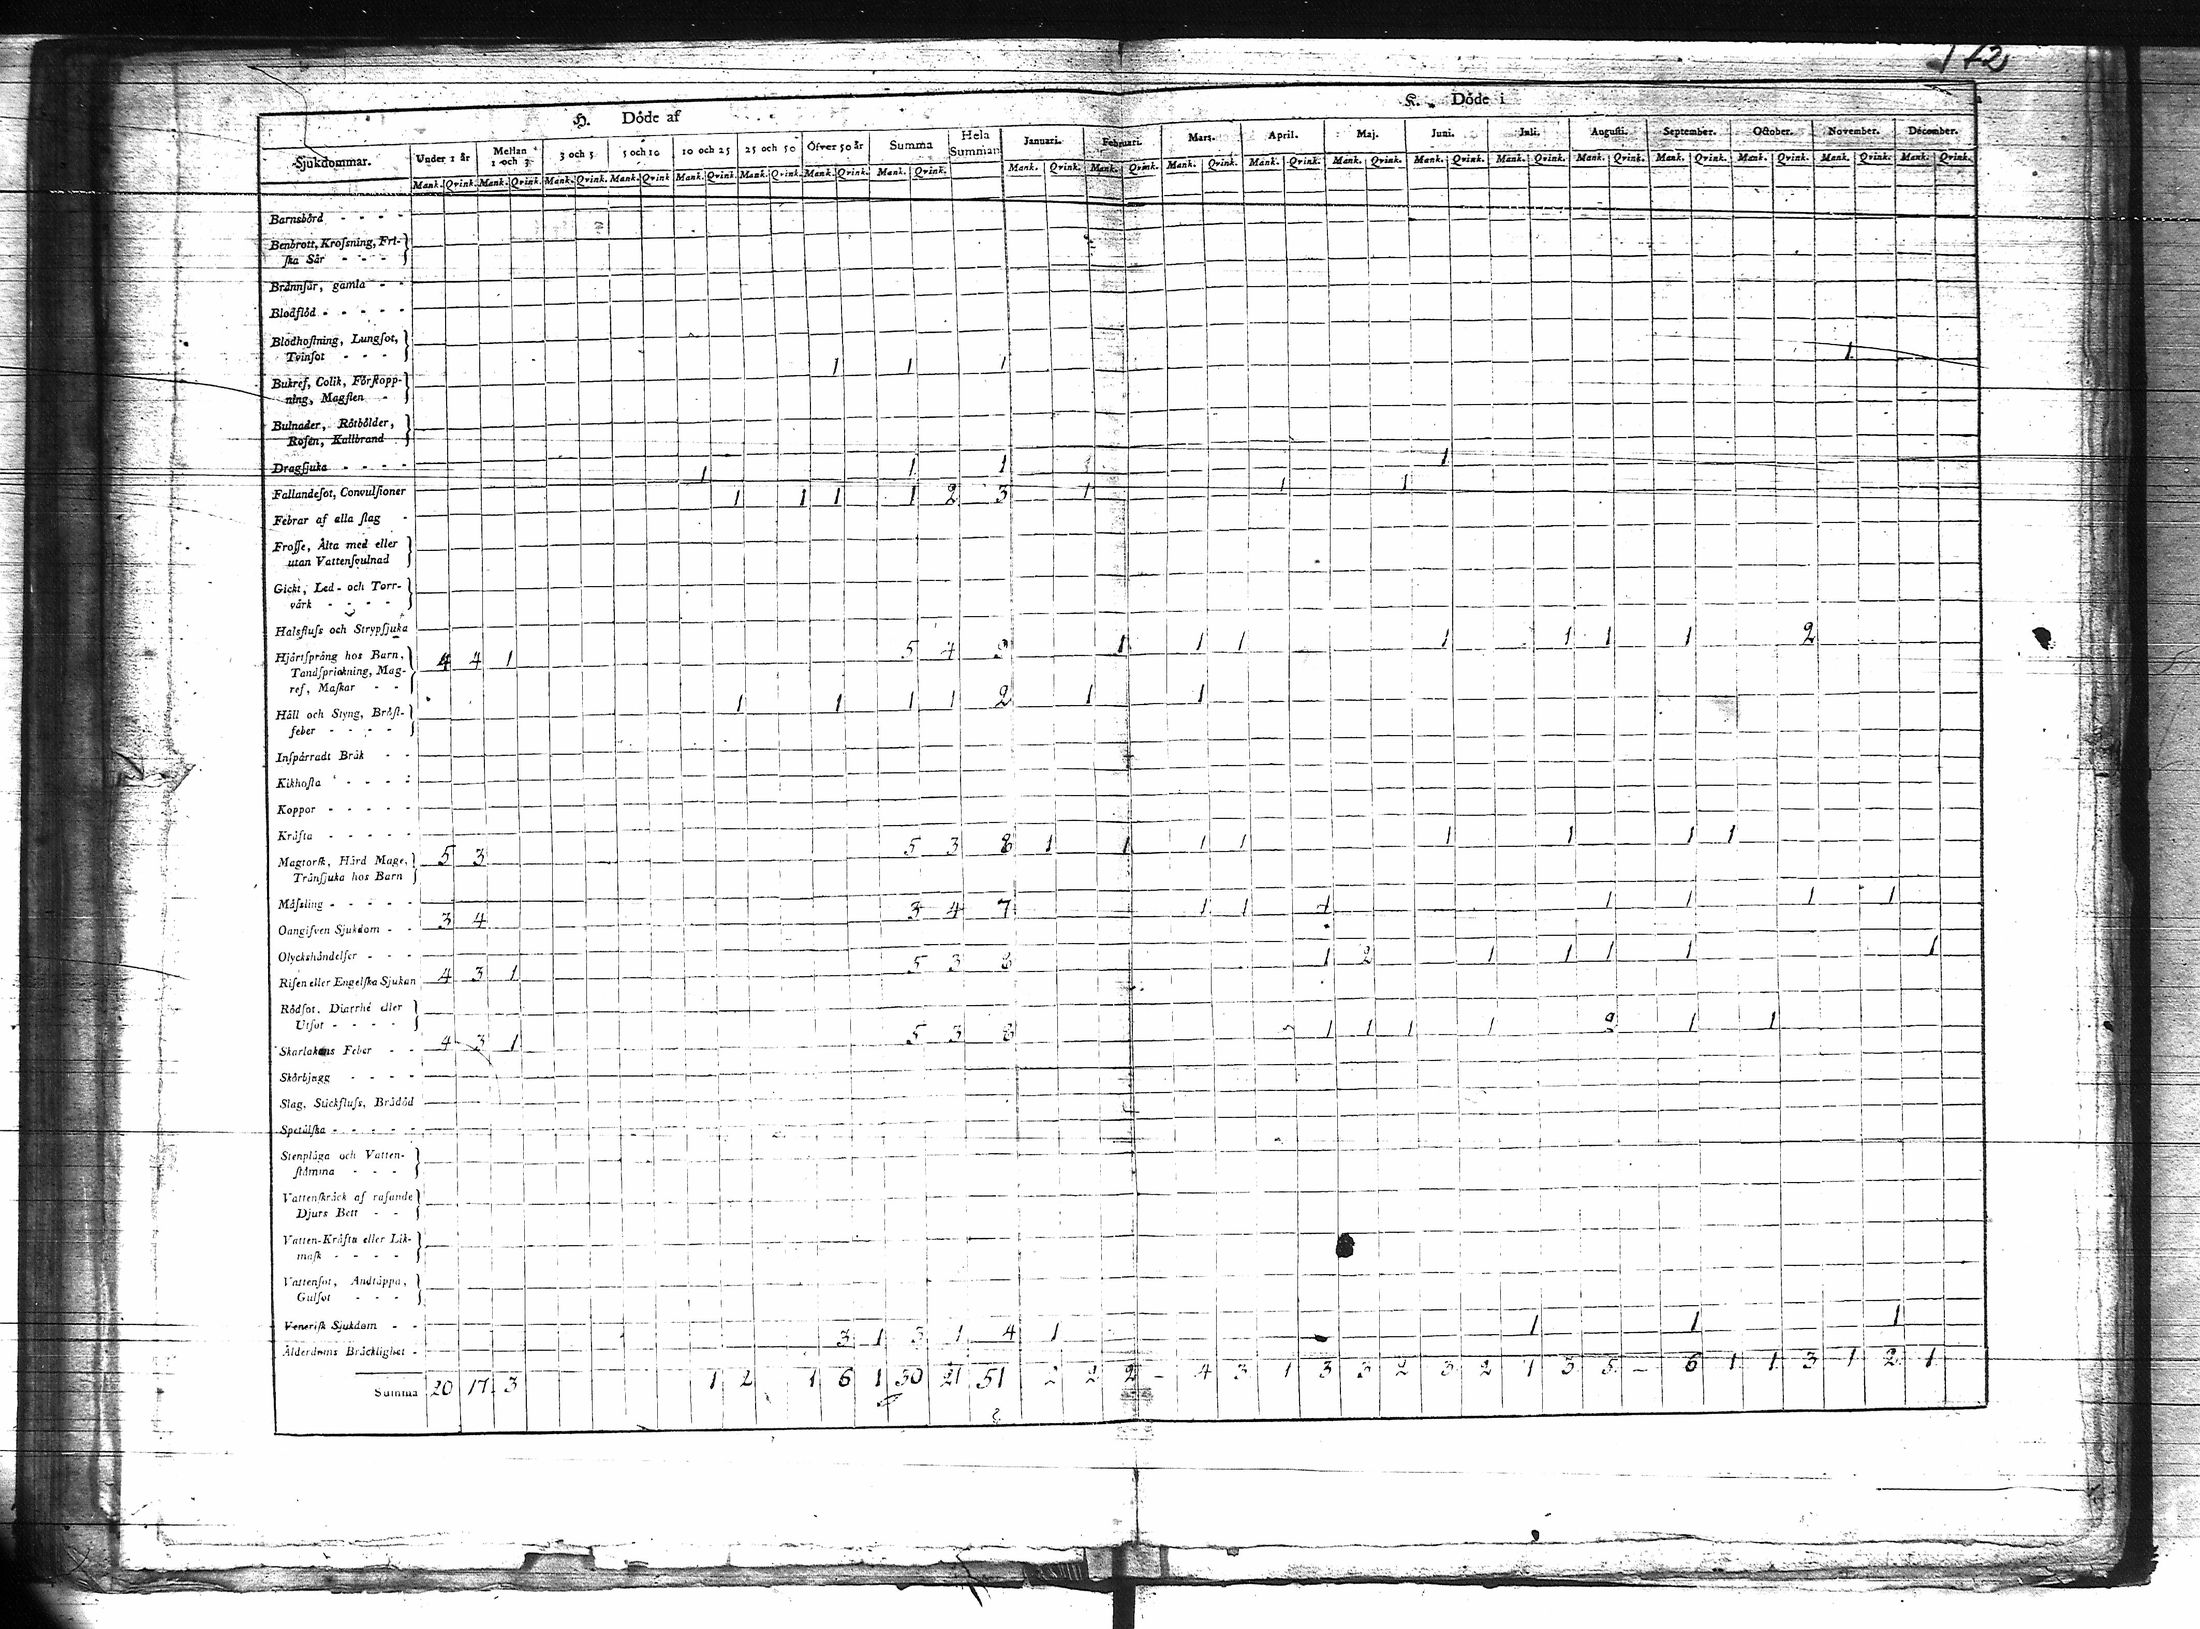 172
H. Döde af
K. Döde i
Sjukdommar. Under 1 år Mellan 1 och 3 3 och 5 5 och 10 10 och 25 25 och 50 Öfver 50 år Summa Hela Summan Januari. Februari. Mars. April. Maj. Juni. Juli. Augusti. September. October. November. December.
Mank. Qvink. Mank. Qvink. Mank. Qvink. Mank. Qvink Mank. Qvink. Mank. Qvink. Mank. Qvink. Mank. Qvink. Mank. Qvink. Mank. Qvink. Mank. Qvink. Mank. Qvink. Mank. Qvink. Mank. Qvink. Mank. Qvink. Mank. Qvink. Mank. Qvink. Mank. Qvink. Mank. Qvink. Mank. Qvink.
Barnsbörd - - - -
Benbrott, Krosning, Fri-
ska Sår - - -
Brännsår, gamla - -
Blodflöd - - - - -
Blodhostning, Lungsot,
Tvinsot - - - -
1 1 1 1
Bukref, Colik, Förstopp-
ning, Magsten -
Bulnader, Rötbölder,
Rosen, Kallbrand
Dragsjuka - - - -
1 1 1 1
Fallandesot, Convulsioner
1 1 1 1 2 3 1 1 1
Febrar af alla slag -
Frosse, Älta med eller
utan Vattensvulnad
Gickt, Led- och Torr-
värk - - - -
Halsfluss och Strypsjuka
4 4 1 5 4 9 1 1 1 1 1 1 1 2
Hjärtsprång hos Barn,
Tandsprickning, Mag-
ref, Maskar - -
1 1 1 1 2 1 1
Håll och Styng, Bröst-
feber - - - -
Inspärradt Bråk - -
Kikhosta - - - -
Koppor - - - - -
Kräfta - - - - -
5 3 5 3 8 1 1 1 1 1 1 1 1
Magtorsk, Hård Mage,
Trånsjuka hos Barn
Mässling - - - - -
3 4 3 4 7 1 1 1 1 1 1 1
Oangifven Sjukdom - -
Olyckshändelser - - -
4 3 1 5 3 8 1 2 1 1 1 1 1
Risen eller Engelska Sjukan
Rödsot, Diarrhé eller
Utsot - - - -
4 3 1 5 3 8 1 1 1 1 2 1 1
Skarlakans Feber - -
Skörbjugg - - - -
Slag, Stickfluss, Brådöd
Spetälska - - - - -
Stenplåga och Vatten-
stämma - - -
Vattenskräck af rasande
Djurs Bett - -
Vatten-Kräfta eller Lik-
mask - - - -
Vattensot, Andtäppa,
Gulsot - - -
Venerisk Sjukdom - -
3 1 3 1 4 1 1 1 1
Ålderdoms Bräcklighet -
Summa 20 17 3 1 2 1 6 1 30 21 51 2 2 2 - 4 3 1 3 3 2 3 2 1 3 5 - 6 1 1 3 1 2 1